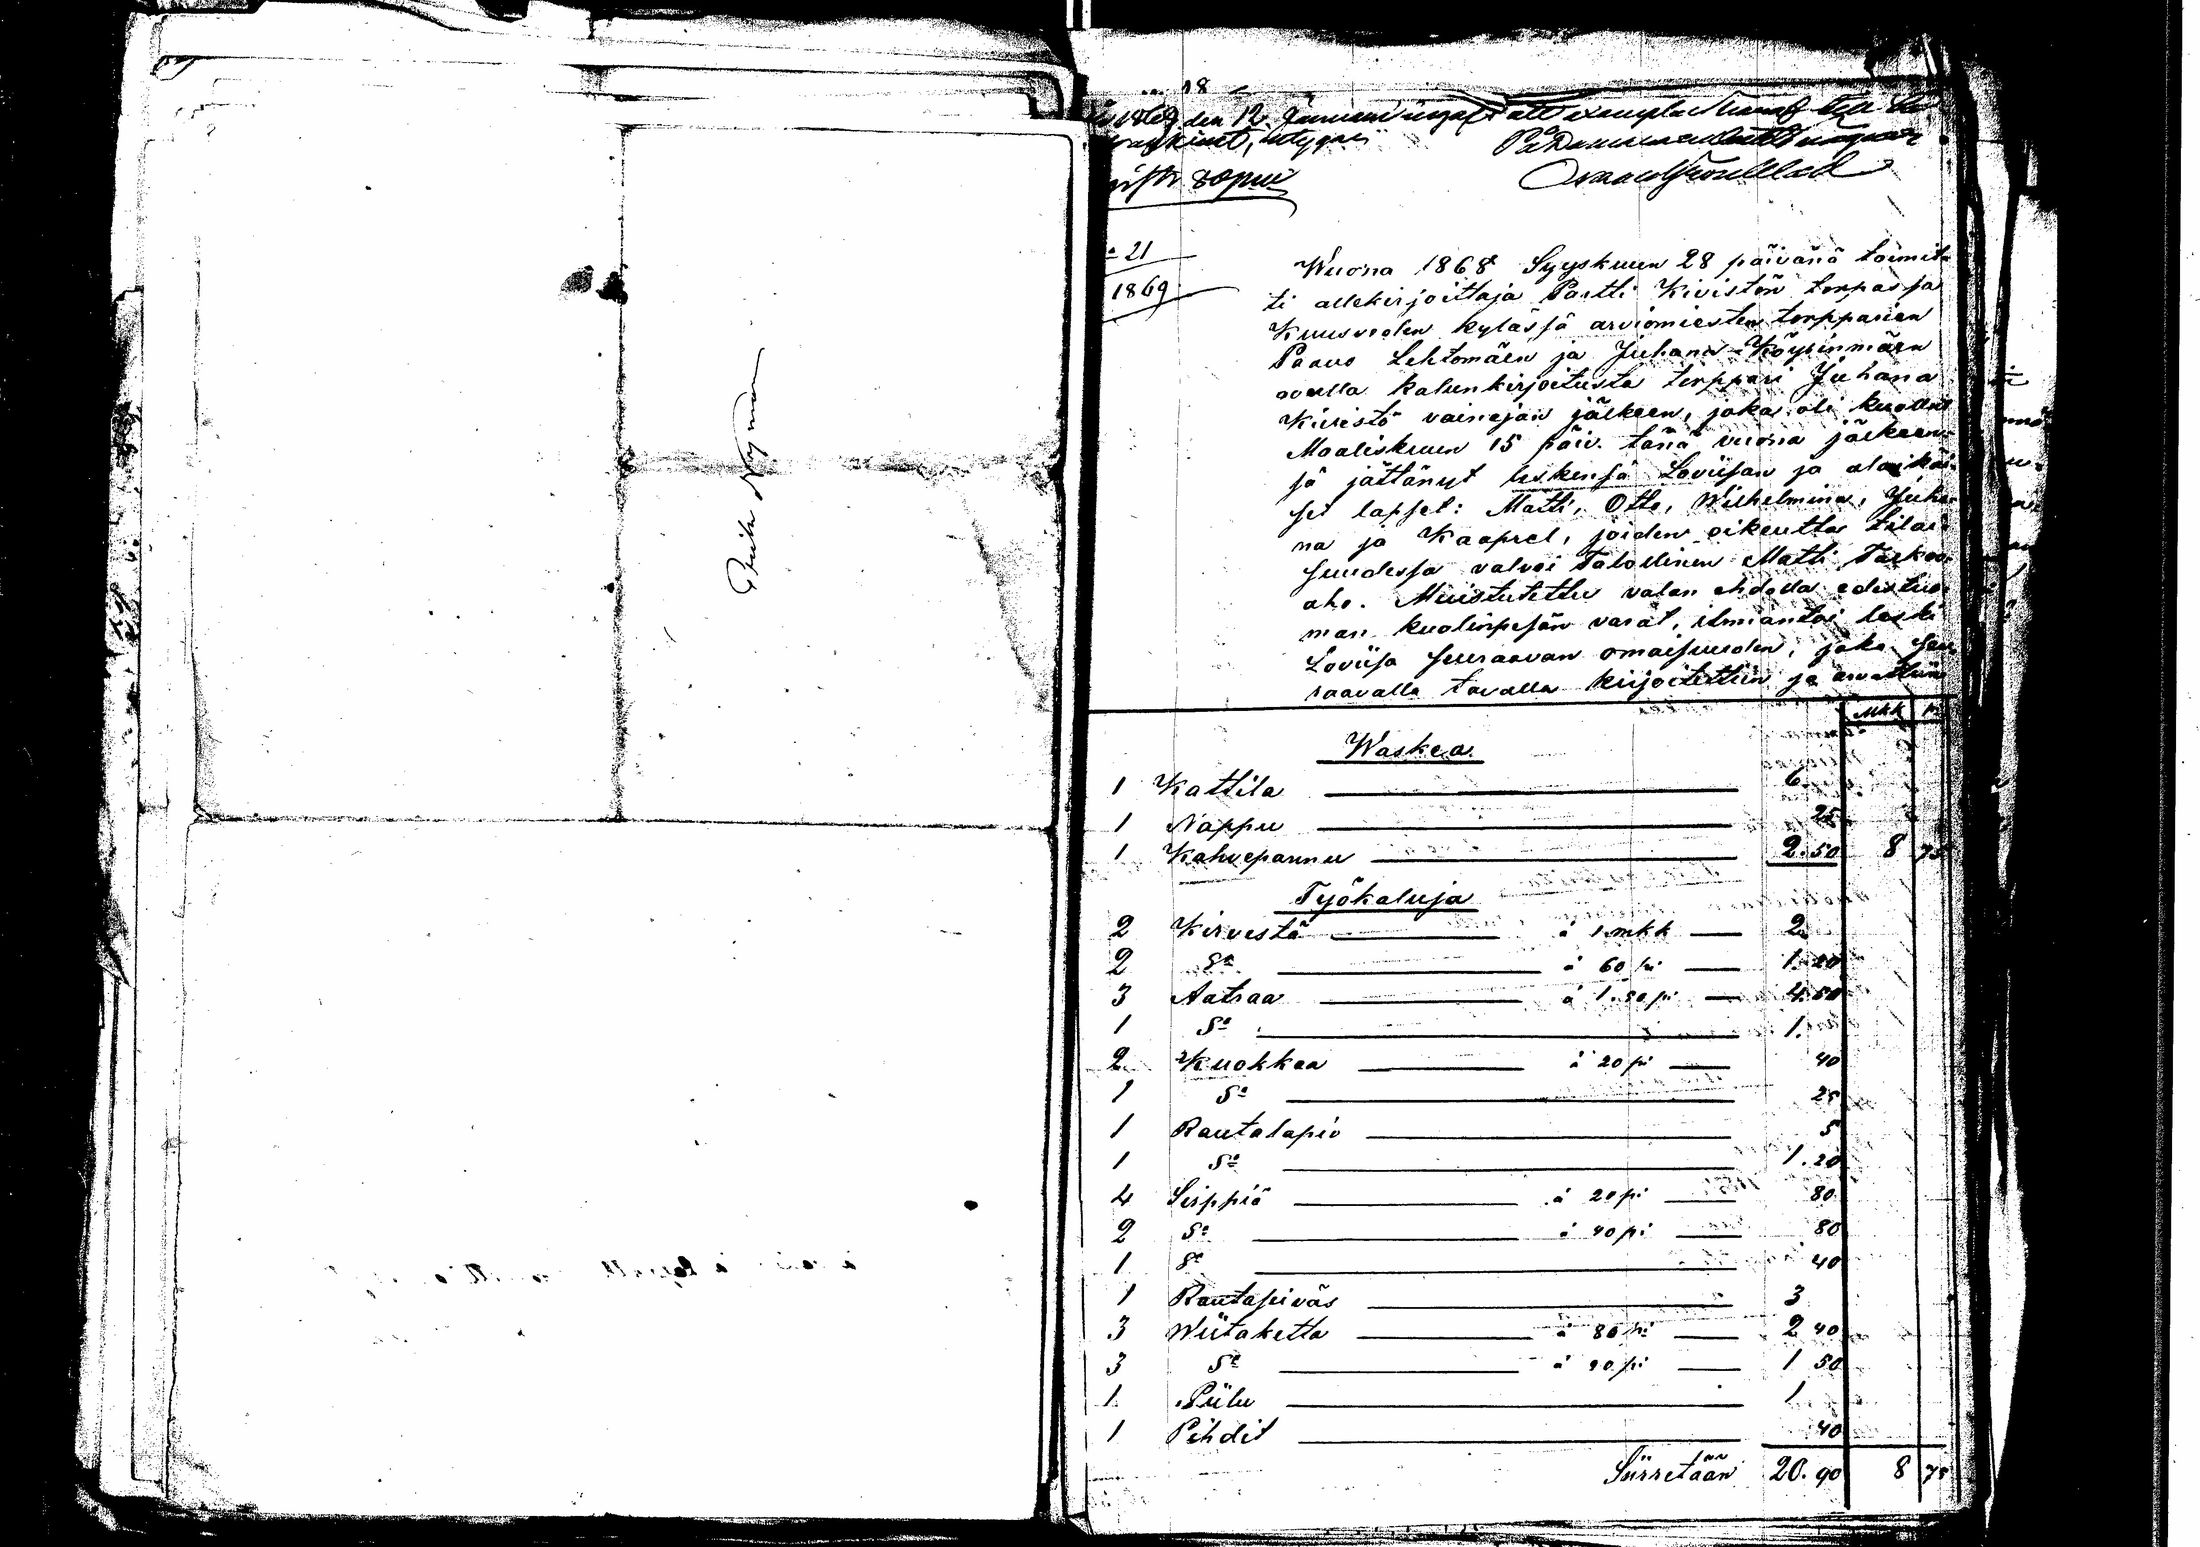 Nyman
18
den 12. Januari ingaf ett exemplar
intygar
På
80 pi
21
1869
Wuona 1868 Syyskuun 28 päivänä toimit
ti allekirjoittaja Partti Kivistön torpassa
Kuusveden kylässä arviomiesten torpparien
Paavo Lehtomäen ja Juhana Köyrinmäen
avulla kalunkirjoitusta torppari Juhana
Kivistö vainajan jälkeen, joka oli kuollut
Maaliskuun 15 päiv. tänä vuona jälkeen
sä jättänyt leskensä Loviisan ja alaikäi
set lapset: Matti, Otto, Wilhelmina, Juha
na ja Kaaprel, joiden oikeutta tilai
suudessa valvoi Talollinen Matti
aho. Muistutettu valan ehdolla edestuo
man kuolinpesän varat, ilmiantoi leski
Loviisa seuraavan omaisuuden, joka seu
raavalla tavalla kirjoitettiin ja arvattiin
Mkk pi
Waskea
1 Kattila 6.
1 Nappu 25
1 Kahvepannu 2.50 8 75
Työkaluja
2 Kirvestä à 1 mkk 2.
2 Sa à 60 pi 1.20
3 Aatraa à 1.50 pi 4.50
1 Sa 1.
2 Kuokkaa à 20 pi 40
1 Sa 25
1 Rautalapio 5
1 Sa 1.20
4 Sirppiä à 20 pi 80
2 Sa à 40 pi 80
1 Sa 40
1 Rautaseiväs 3
3 Wiitaketta à 80 pi 2 40
3 Sa 1 50
1 Piilu 1
1 Pihdit 40
Siirretään 20.90 8 75